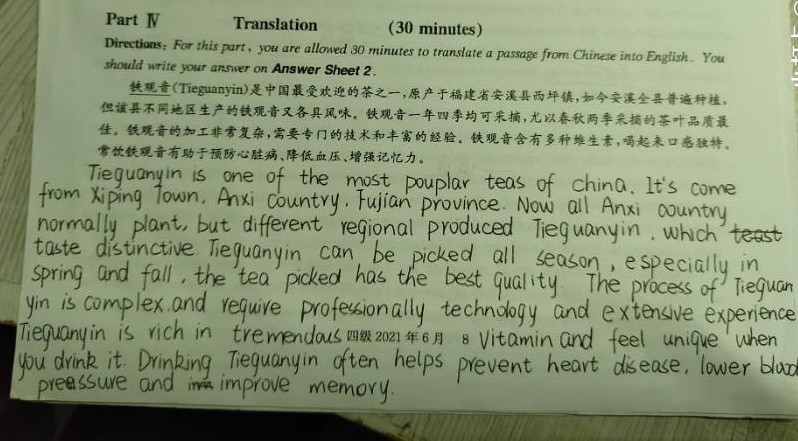 Part Ⅳ Translation (30 minutes)
Directions: For this part, you are allowed 30 minutes to translate a passage from Chinese into English. You
should write your answer on Answer Sheet 2.
铁观音(Tieguanyin)是中国最受欢迎的茶之一,原产于福建省安溪县西坪镇,如今安溪全县普遍种植,
但该县不同地区生产的铁观音又各具风味。铁观音一年四季均可采摘,尤以春秋两季采摘的茶叶品质最
佳。铁观音的加工非常复杂,需要专门的技术和丰富的经验。铁观音含有多种维生素,喝起来口感独特。
常饮铁观音有助于预防心脏病、降低血压、增强记忆力。
Tieguanyin is one of the most pouplar teas of china. It's come
from Xiping Town, Anxi Country, Fujian province. Now all Anxi country
normally plant, but different regional produced Tieguanyin, which teast
taste distinctive. Tieguanyin can be picked all season, especially in
spring and fall, the tea picked has the best quality. The process of Tieguan
yin is complex.and require professionally technology and extensive experience
Tieguanyin is rich in tremendous 四级 2021 年 6 月 8 Vitamin and feel unique when
you drink it. Drinking Tieguanyin often helps prevent heart disease, lower blood
preassure and improve memory.